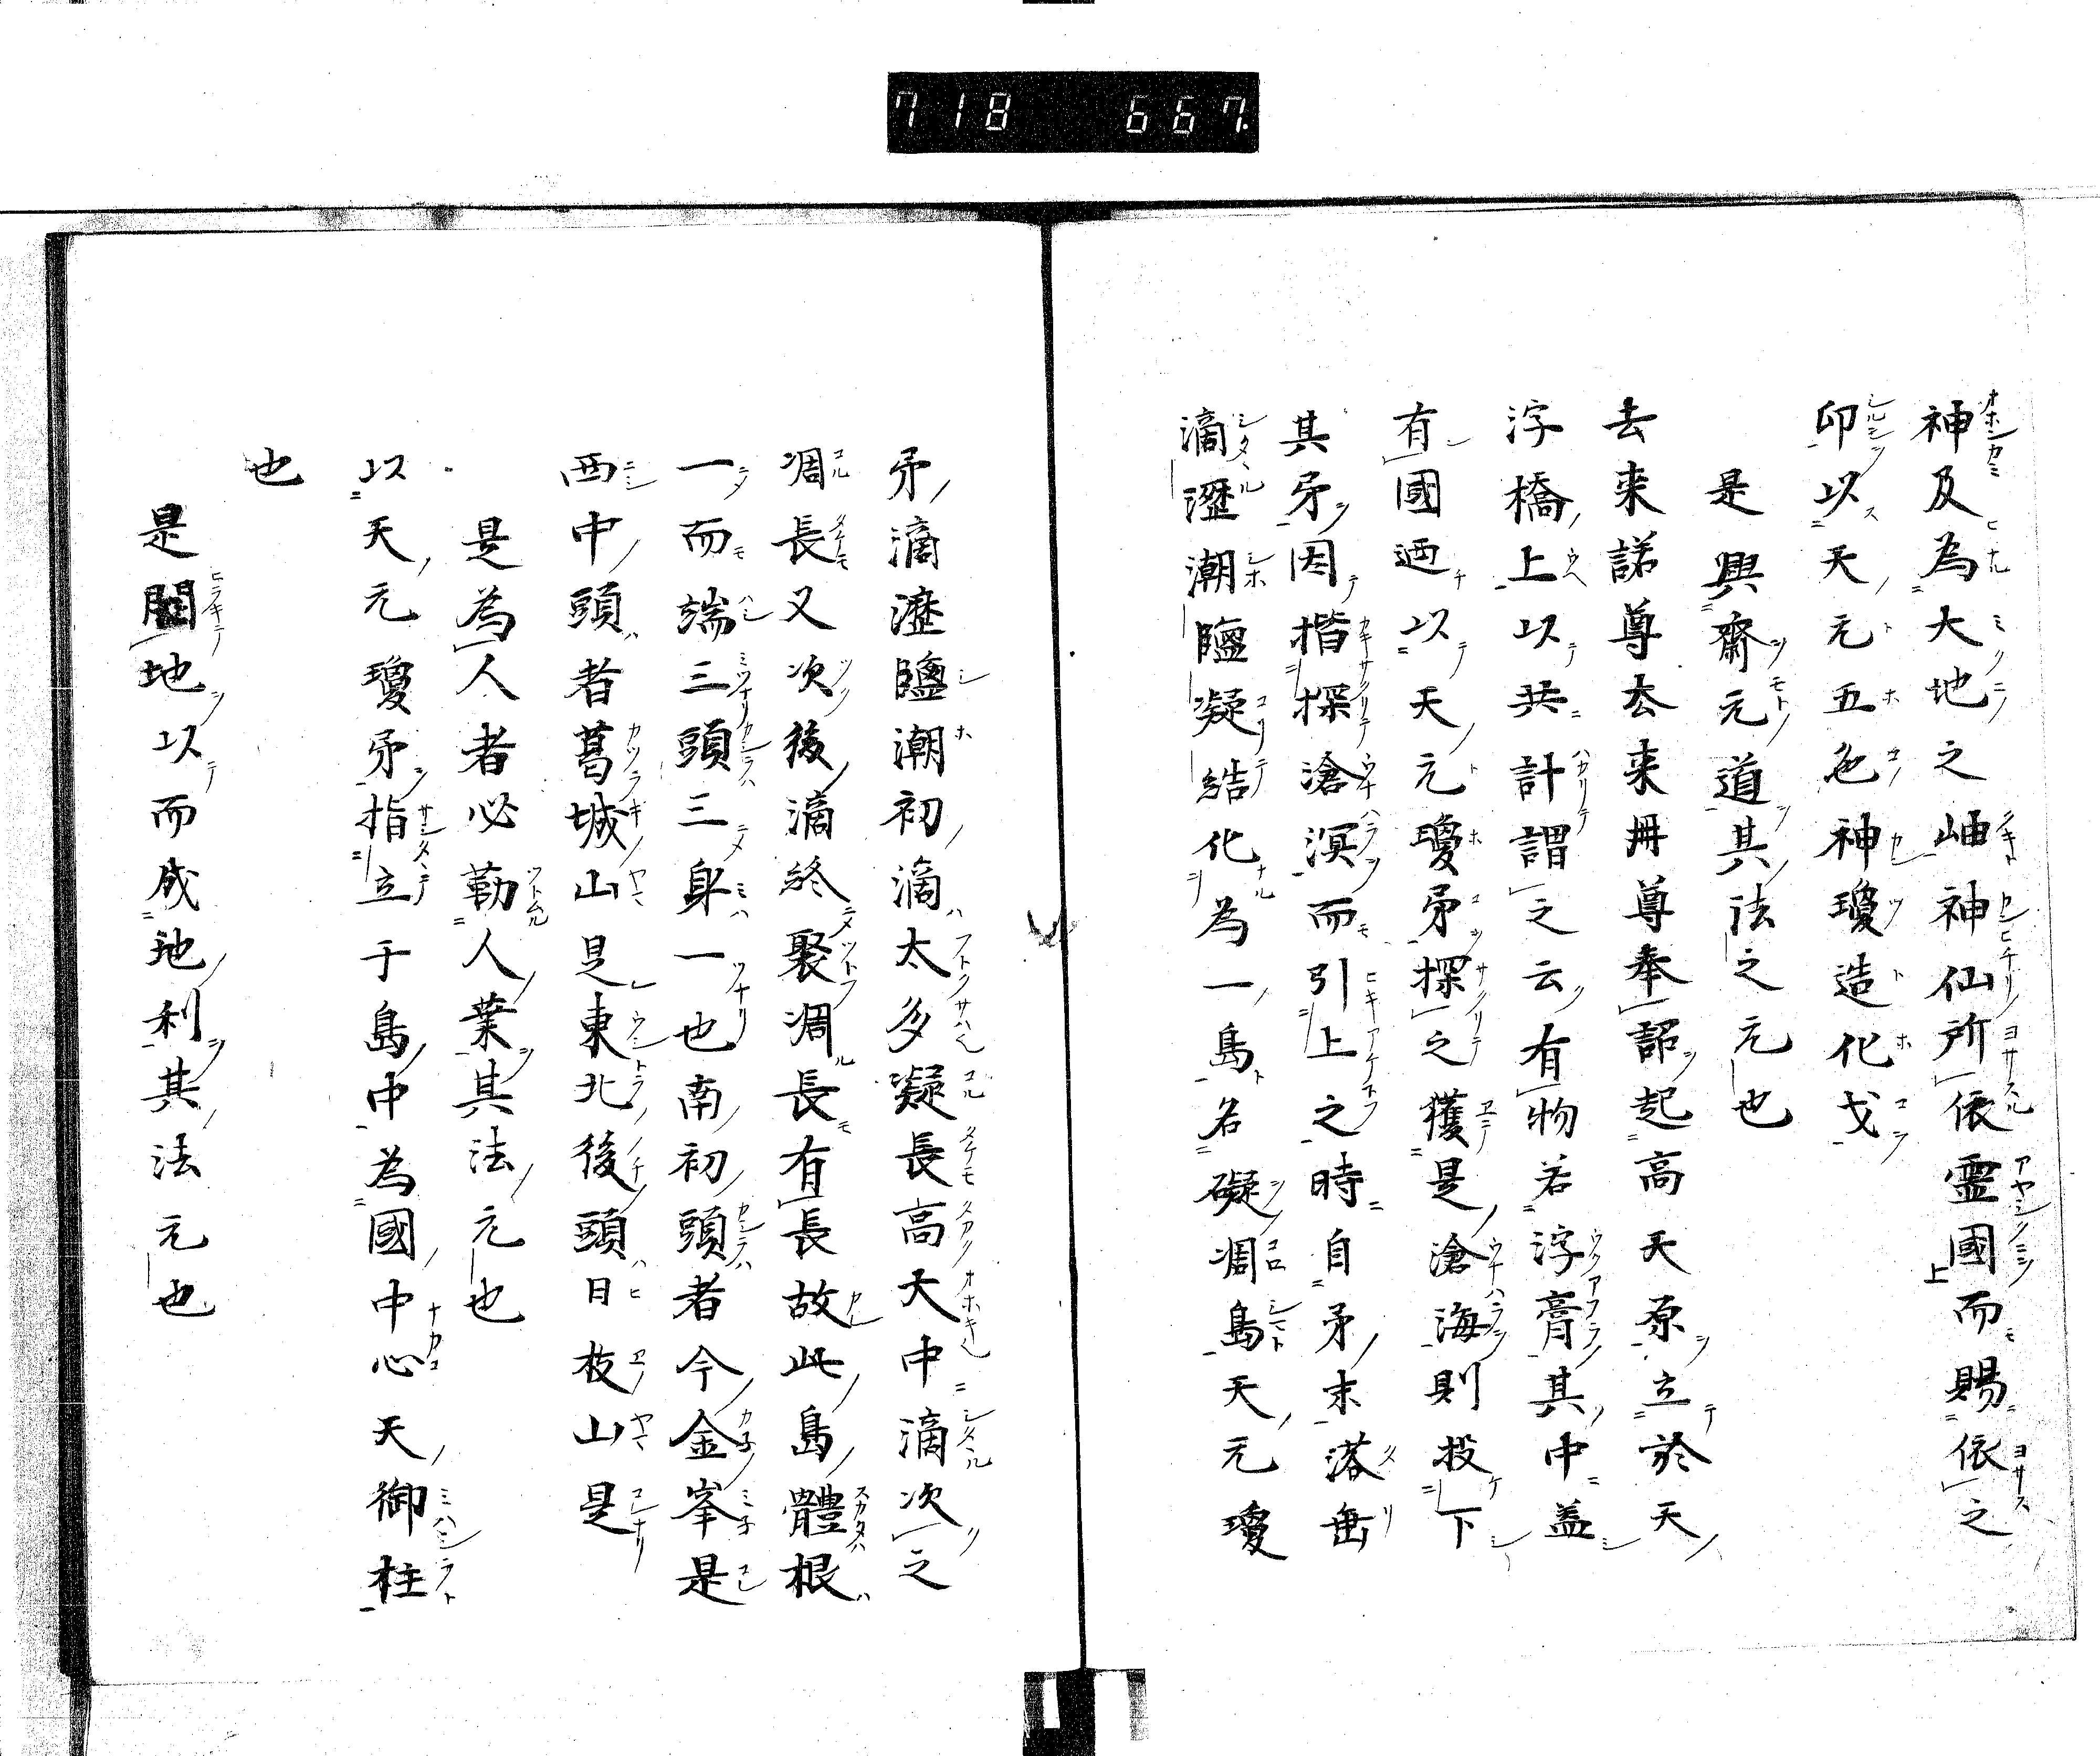 718 667.
神及為大地之岫神神仙所依霊國而賜依之
印以天元五色神瓊造化戈
是興齋元道其法之元也
去来諾尊去来冊尊奉詔起高天原立於天
浮橋上以共計謂之云有物若浮膏其中蓋
有國迺以天元瓊矛探之獲是滄海則投下
其矛因揩探滄溟而引上之時自矛末落垂
滴瀝潮鹽凝結化為一島名礙凋島天元瓊
矛滴瀝鹽潮初滴太多凝長高大中滴次之
凋長又次後滴終聚凋長有長故此島體根
一而端三頭三身一也南初頭者今金峯是
西中頭者葛城山是東北後頭日枝山是
是為人者必勤人業其法元也
以天元瓊矛指立于島中為國中心天御柱
也
是開地以而成地利其法元也